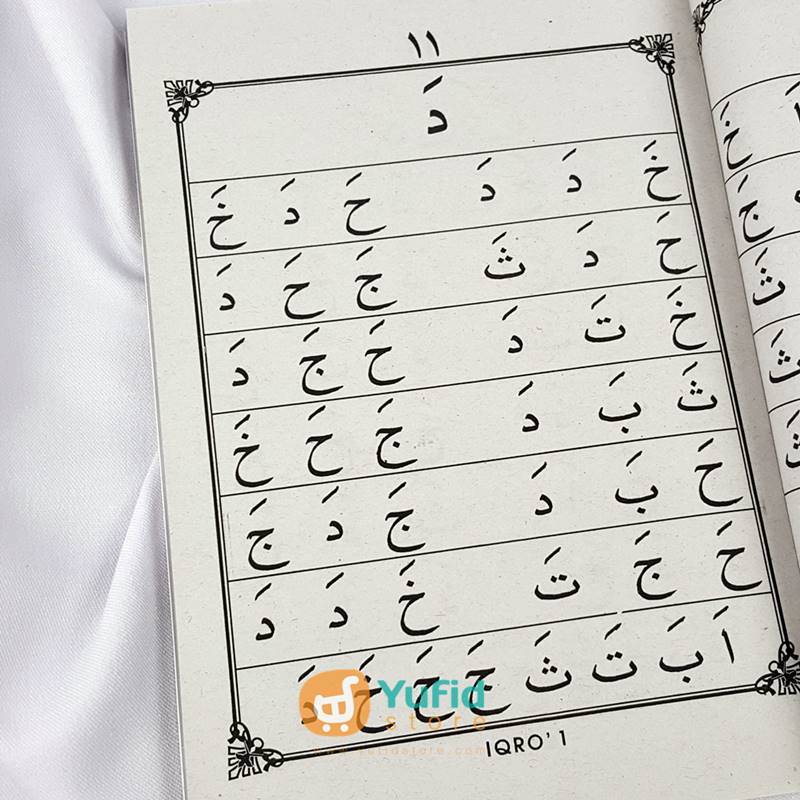 ١١
دَ
خَ دَ دَ حَ دَ خَ
حَ دَ ثَ جَ حَ دَ
خَ تَ دَ حَ جَ دَ
ثَ بَ دَ جَ حَ خَ
حَ بَ دَ جَ دَ جَ
حَ جَ تَ خَ دَ دَ
اَ بَ تَ ثَ جَ حَ خَ دَ
Yufid
store
www.yufidstore.com
IQRO' 1